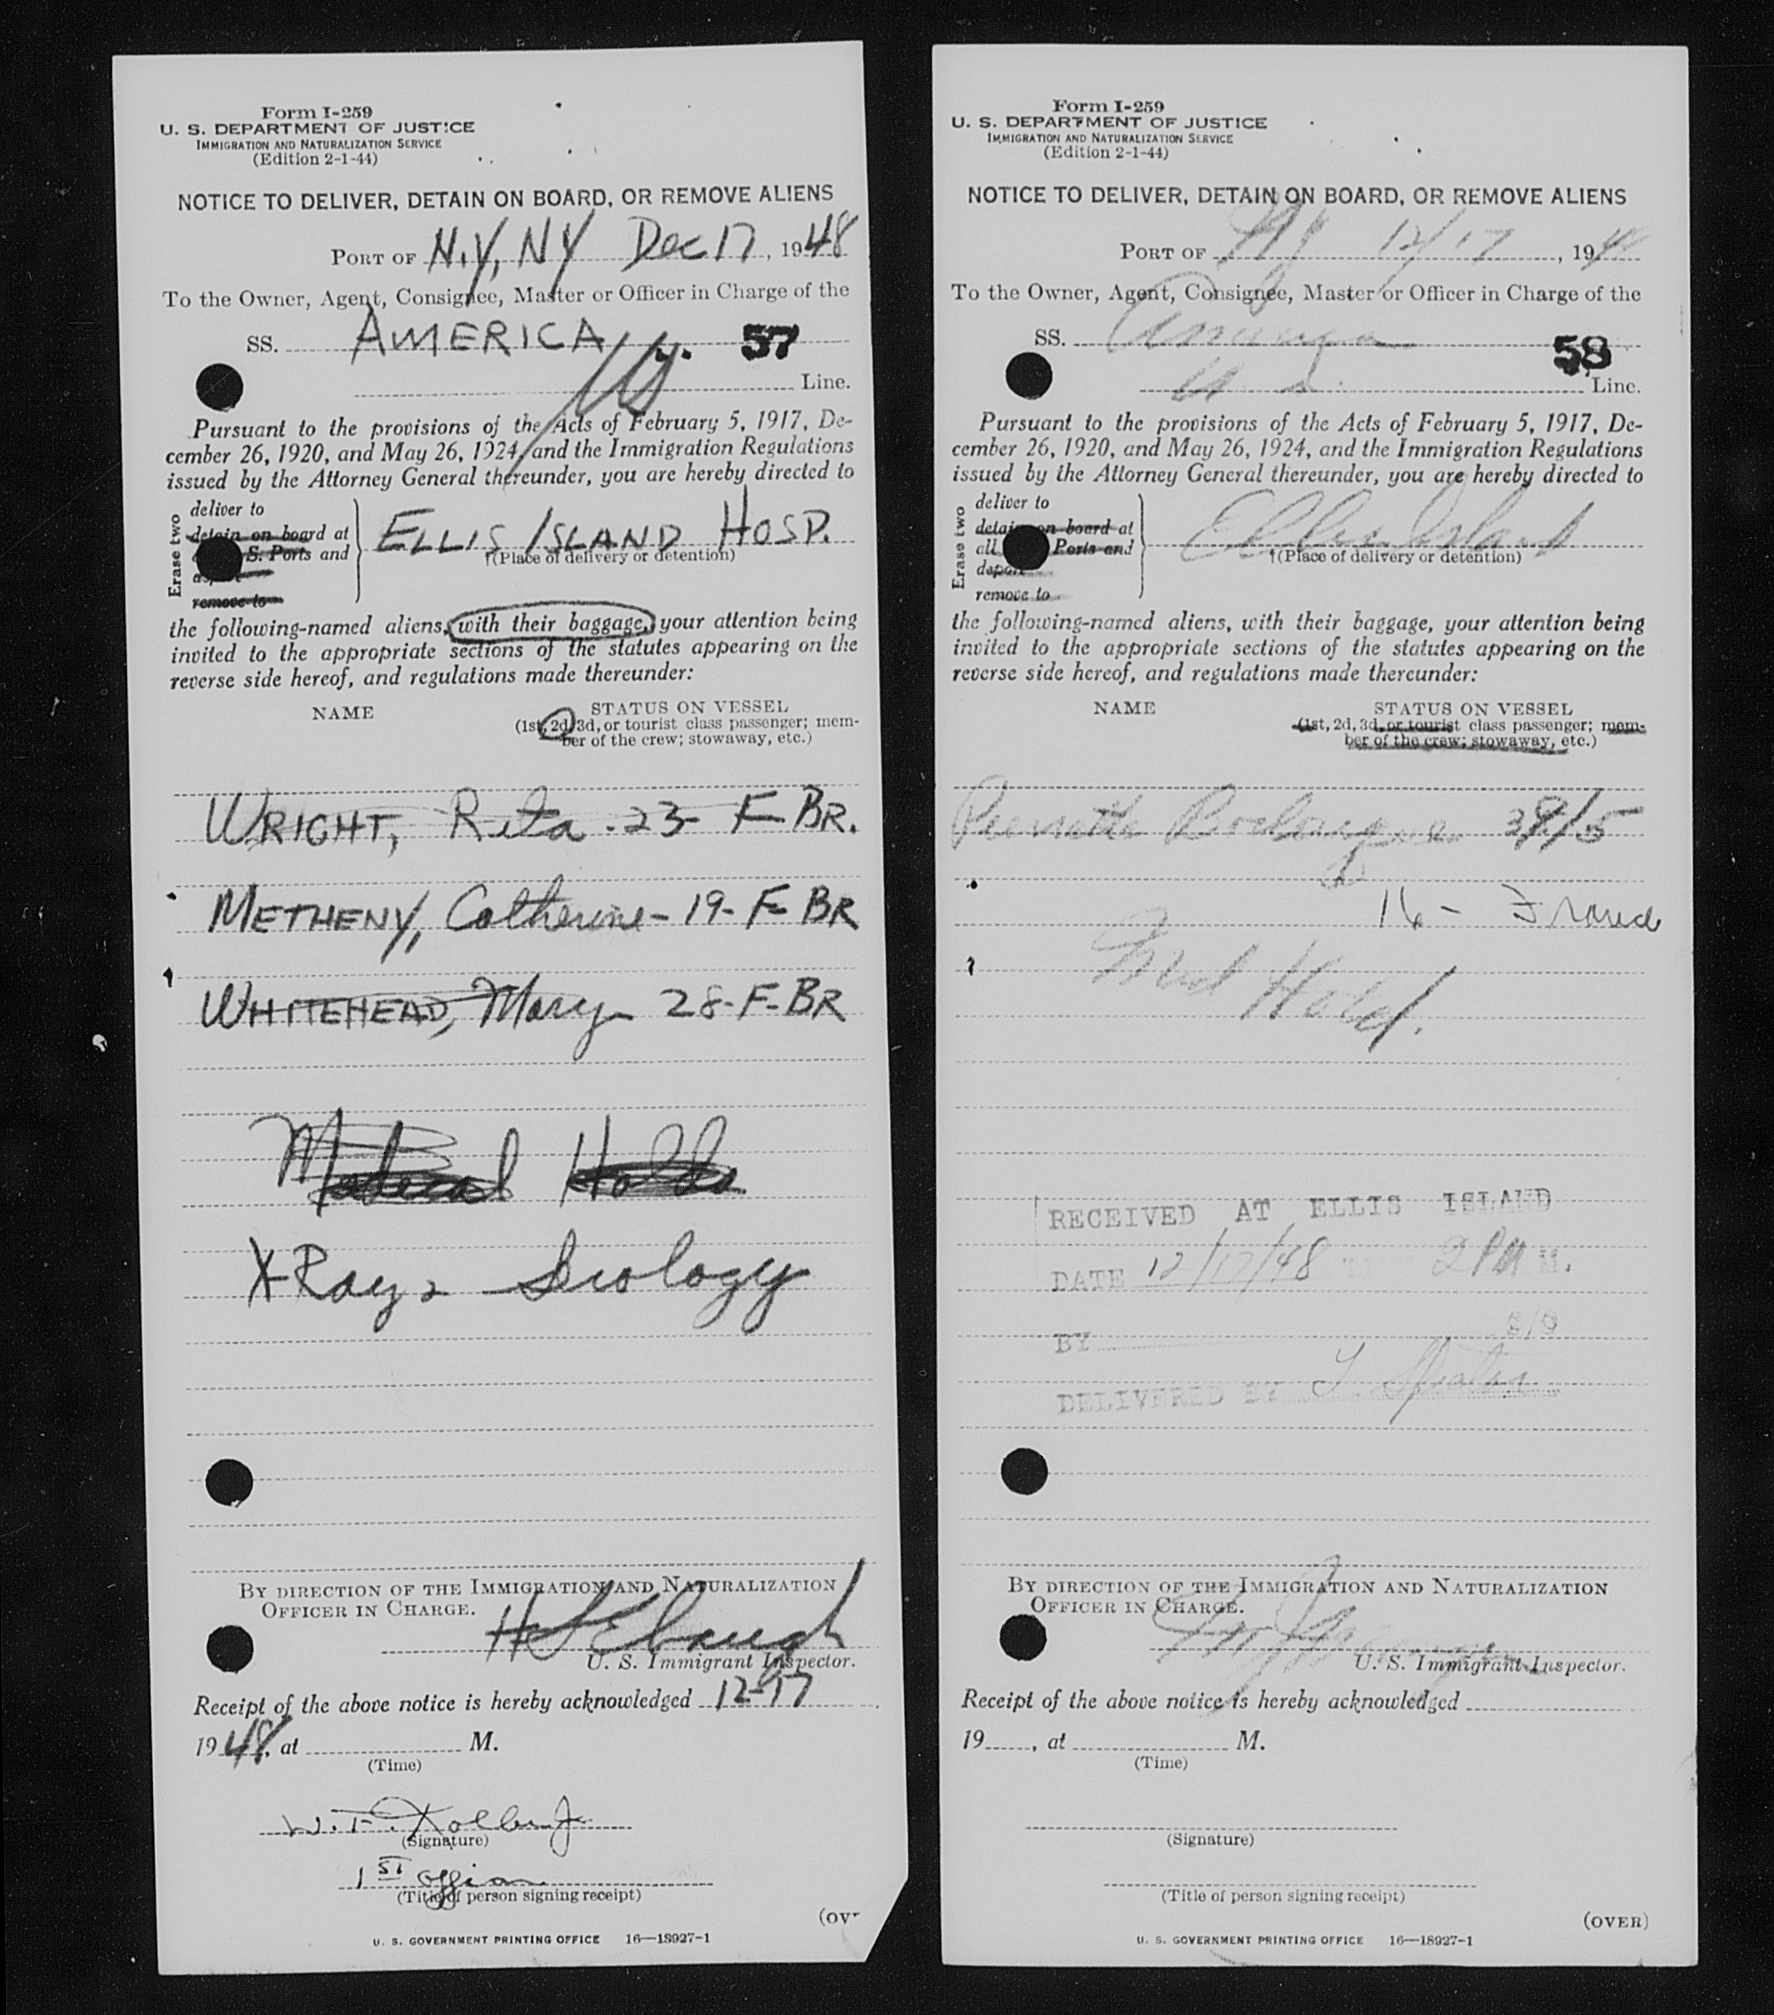 Form I-259
U. S. DEPARTMENT OF JUSTICE
IMMIGRATION AND NATURALIZATION SERVICE
(Edition 2-1-44)
NOTICE TO DELIVER, DETAIN ON BOARD, OR REMOVE ALIENS
PORT OF N.Y, NY Dec 17, 1948
To the Owner, Agent, Consignee, Master or Officer in Charge of the
SS. AMERICA 57
Line.
Pursuant to the provisions of the Acts of February 5, 1917, De-
cember 26, 1920, and May 26, 1924, and the Immigration Regulations
issued by the Attorney General thereunder, you are hereby directed to
Erase two
deliver to
detain on board at
S. Ports and
remove to
ELLIS ISLAND HOSP.
†(Place of delivery or detention)
the following-named aliens, with their baggage, your attention being
invited to the appropriate sections of the statutes appearing on the
reverse side hereof, and regulations made thereunder:
NAME STATUS ON VESSEL
(1st, 2d, 3d, or tourist class passenger; mem-
ber of the crew; stowaway, etc.)
WRIGHT, Rita - 23 - F - BR.
METHENY, Catherine - 19 - F - BR
WHITEHEAD, Mary - 28 - F - BR
Medical Holds
X-Ray
BY DIRECTION OF THE IMMIGRATION AND NATURALIZATION
OFFICER IN CHARGE.
U. S. Immigrant Inspector.
Receipt of the above notice is hereby acknowledged 12-17
1948, at M.
(Time)
W. F.
(Signature)
1ST
(Title of person signing receipt)
(OV
U. S. GOVERNMENT PRINTING OFFICE 16—18927-1
Form I-259
U. S. DEPARTMENT OF JUSTICE
IMMIGRATION AND NATURALIZATION SERVICE
(Edition 2-1-44)
NOTICE TO DELIVER, DETAIN ON BOARD, OR REMOVE ALIENS
PORT OF NY 12/17, 194
To the Owner, Agent, Consignee, Master or Officer in Charge of the
SS. America 58
U S Line.
Pursuant to the provisions of the Acts of February 5, 1917, De-
cember 26, 1920, and May 26, 1924, and the Immigration Regulations
issued by the Attorney General thereunder, you are hereby directed to
Erase two
deliver to
detain on board at
all Ports and
deport
remove to
Ellis Island
†(Place of delivery or detention)
the following-named aliens, with their baggage, your attention being
invited to the appropriate sections of the statutes appearing on the
reverse side hereof, and regulations made thereunder:
NAME STATUS ON VESSEL
(1st, 2d, 3d, or tourist class passenger; mem-
ber of the crew; stowaway, etc.)
16 -
Med Hold.
RECEIVED AT ELLIS ISLAND
DATE 12/17/48 2 PM M.
BY
DELIVERED BY
BY DIRECTION OF THE IMMIGRATION AND NATURALIZATION
OFFICER IN CHARGE.
U. S. Immigrant Inspector.
Receipt of the above notice is hereby acknowledged
19 , at M.
(Time)
(Signature)
(Title of person signing receipt)
(OVER)
U. S. GOVERNMENT PRINTING OFFICE 16—18927-1